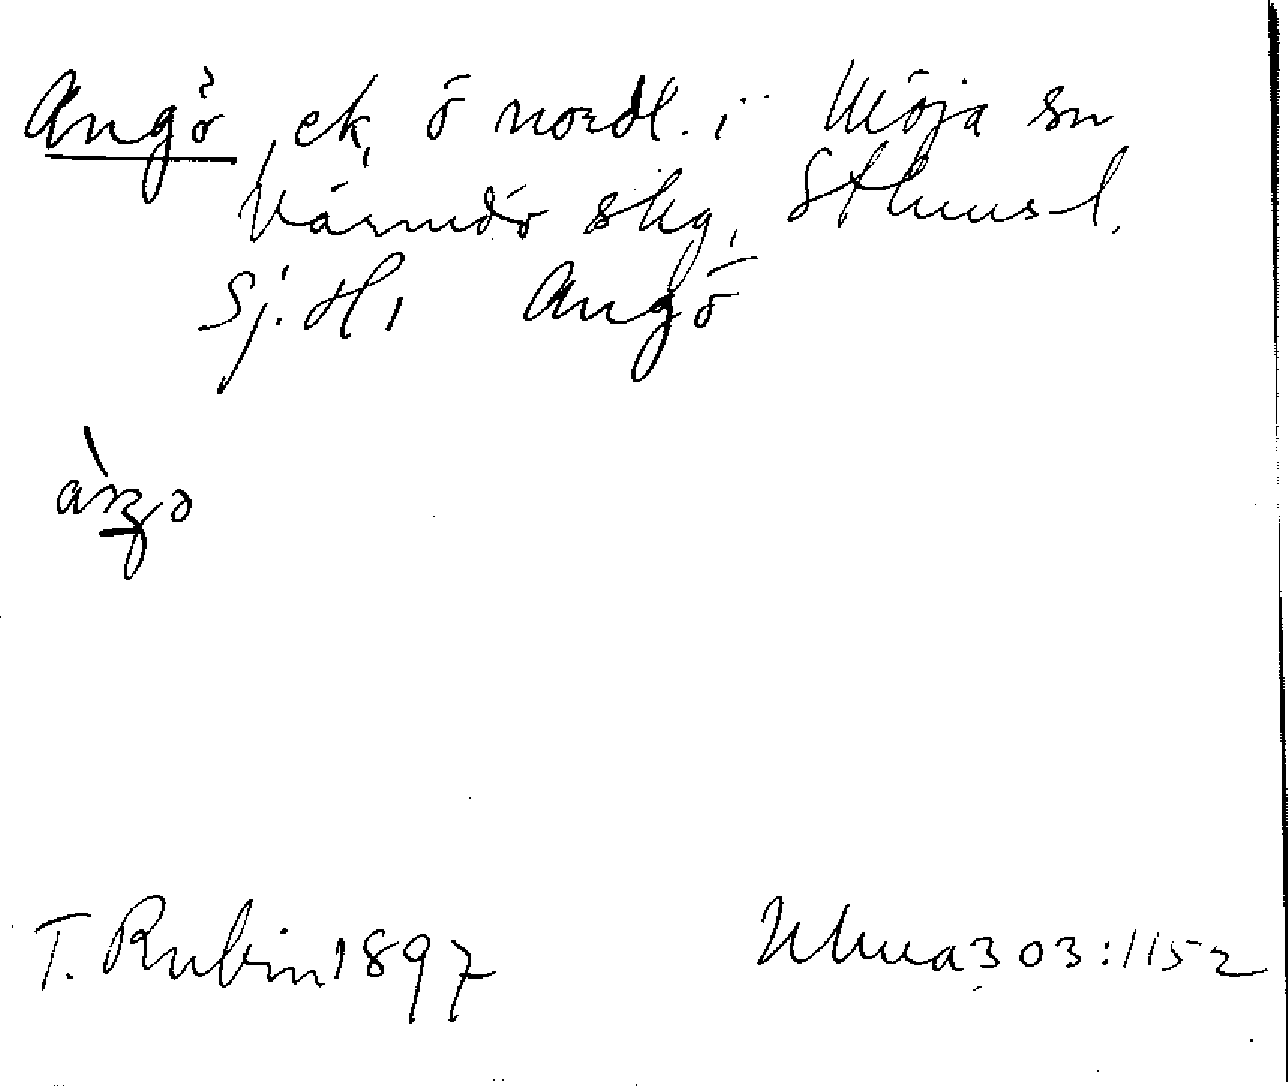 Angö, ek, ö nordl. i Möja sn
Värmdö skg, Sthms l.
Sj. H1 Angö
T. Rubin 1897 Ulma 303:1152